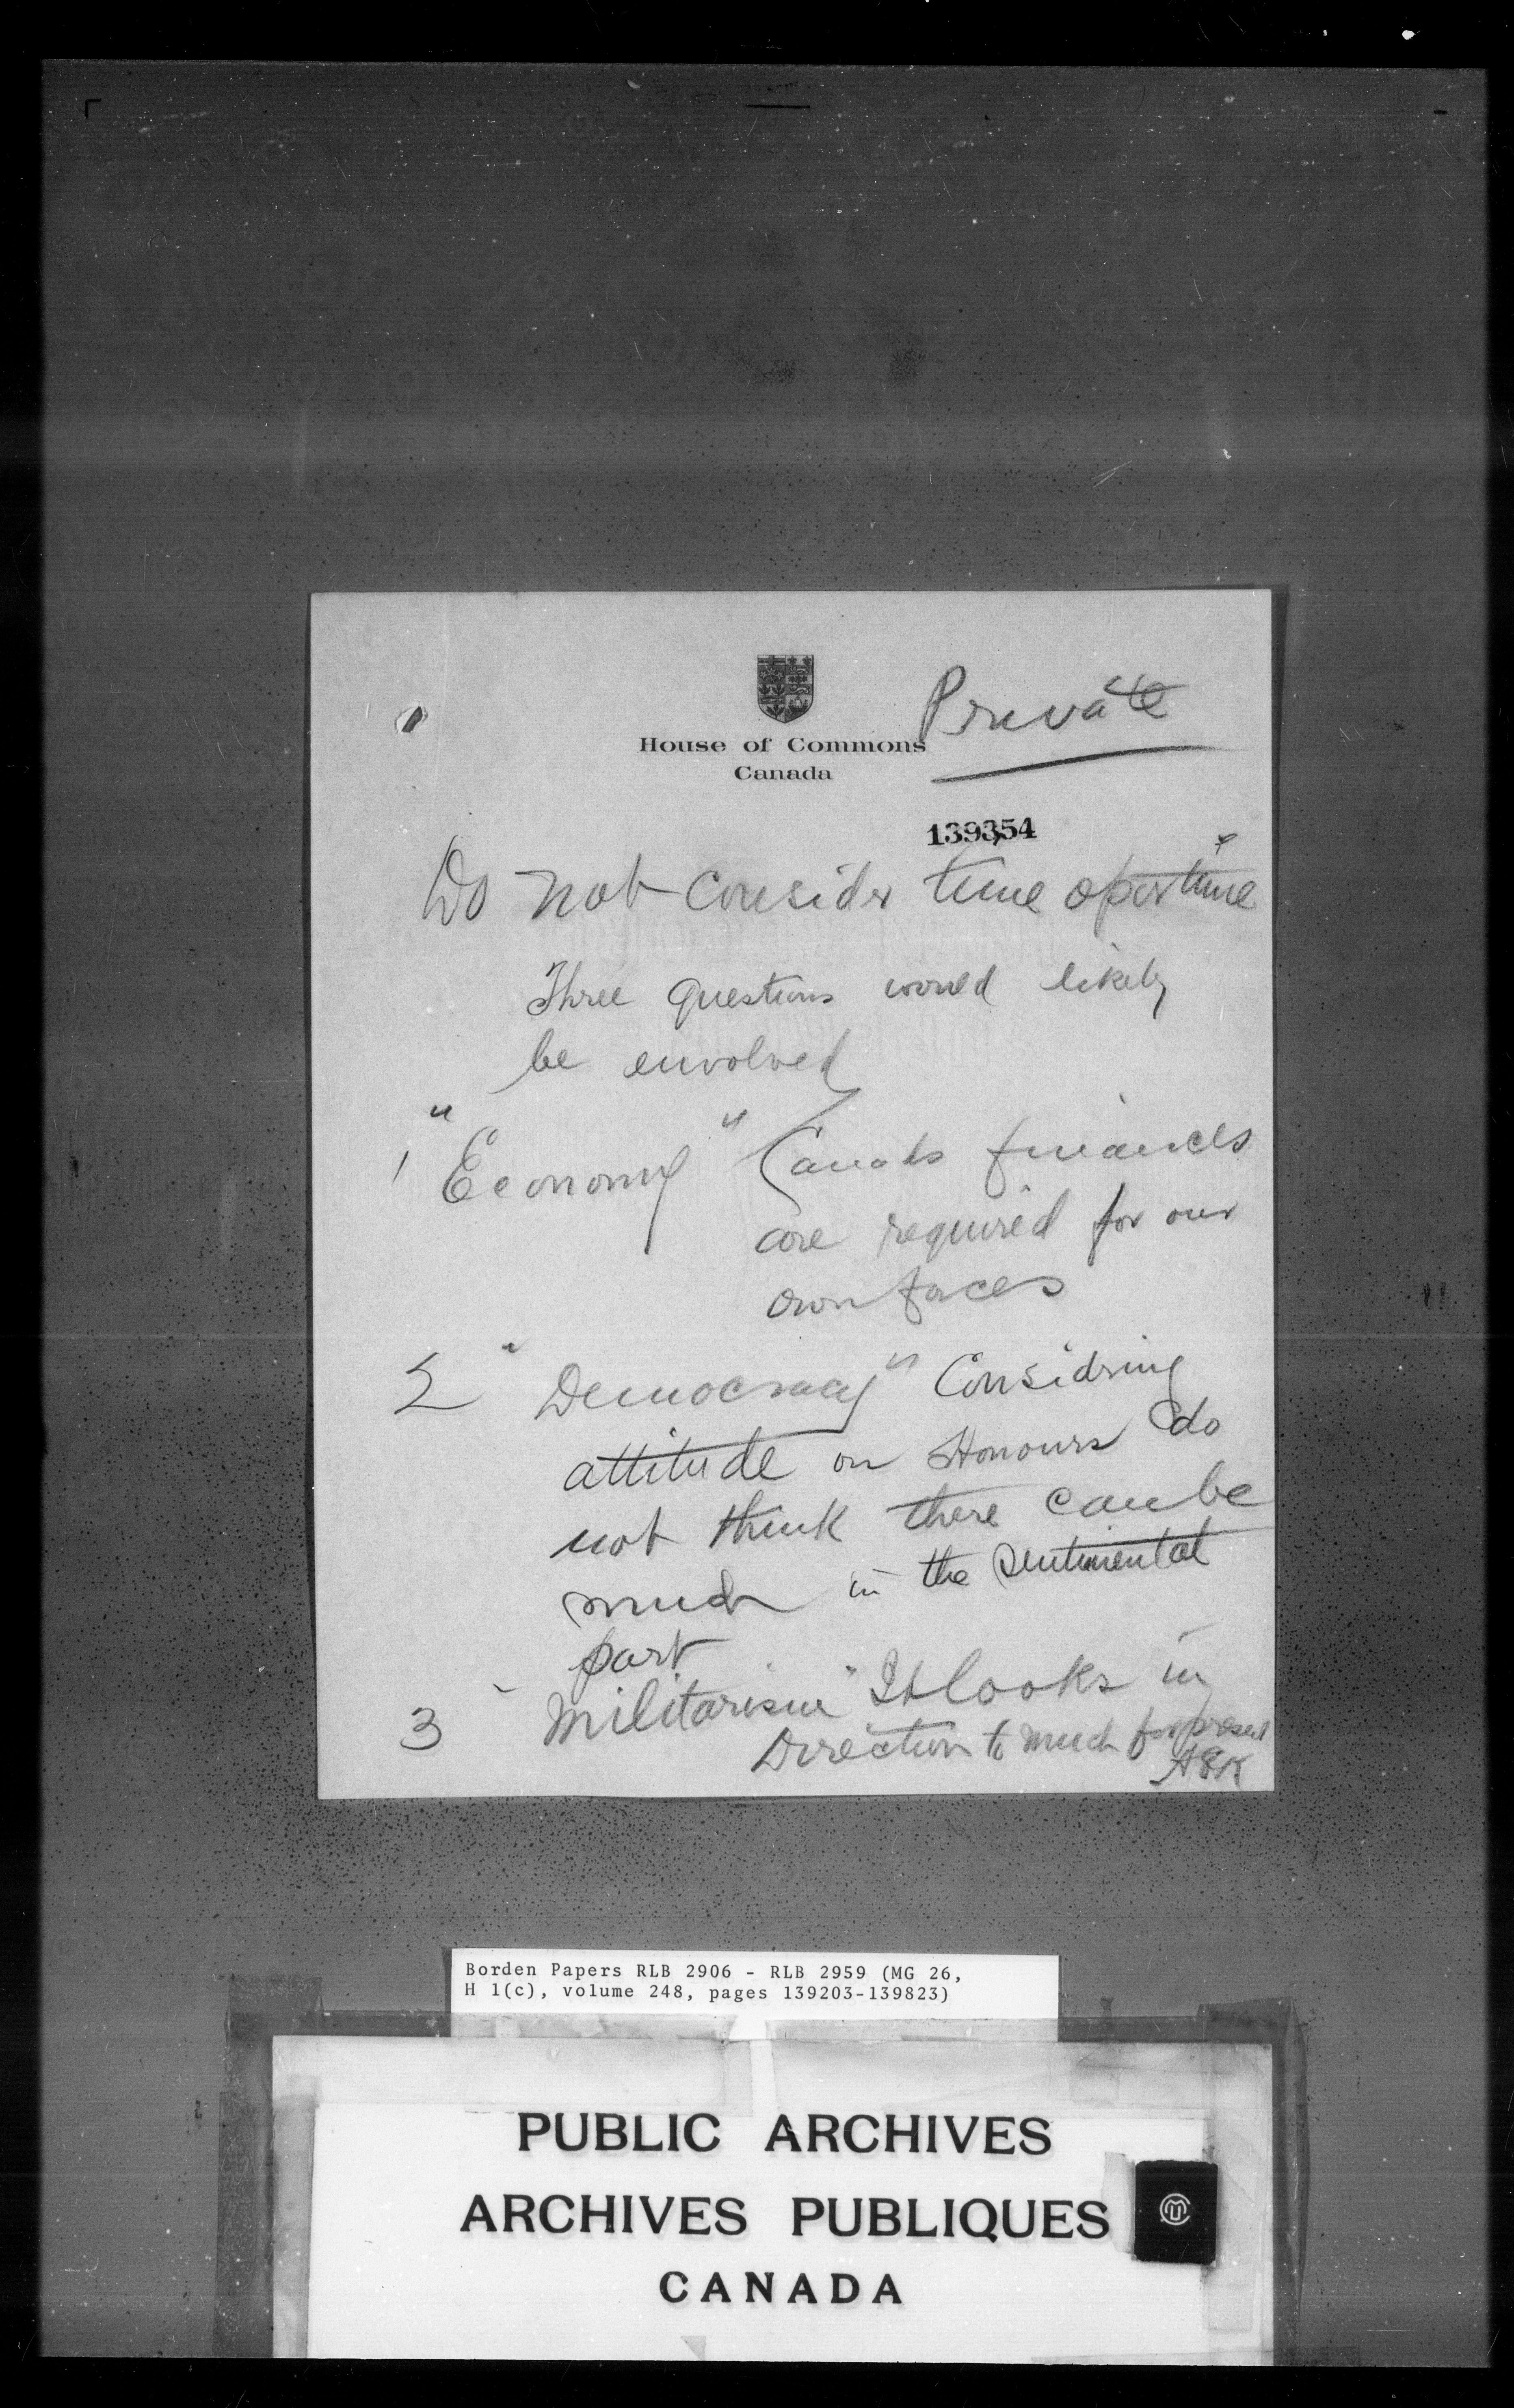 Private
House of Commons
Canada
139354
Do not consider time opertune
Three questions would likely
be envolved
1 "Economy" Canada finances
are required for our
own forces
2 "Democracy" Considring
attitude on Honours do
not think there can be
much in the sentimental
part
3 "Militarism" It looks in
Direction to much for present
Borden Papers RLB 2906 - RLB 2959 (MG 26,
H 1(c), volume 248, pages 139203-139823)
PUBLIC ARCHIVES
ARCHIVES PUBLIQUES
CANADA